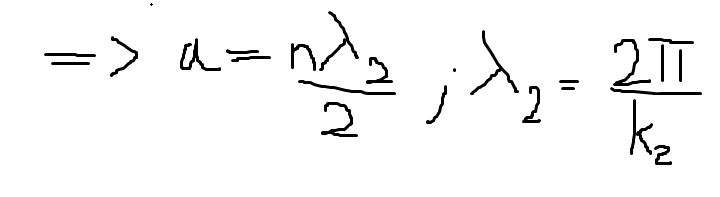 => a = nλ₂/2 ; λ₂ = 2π/k₂